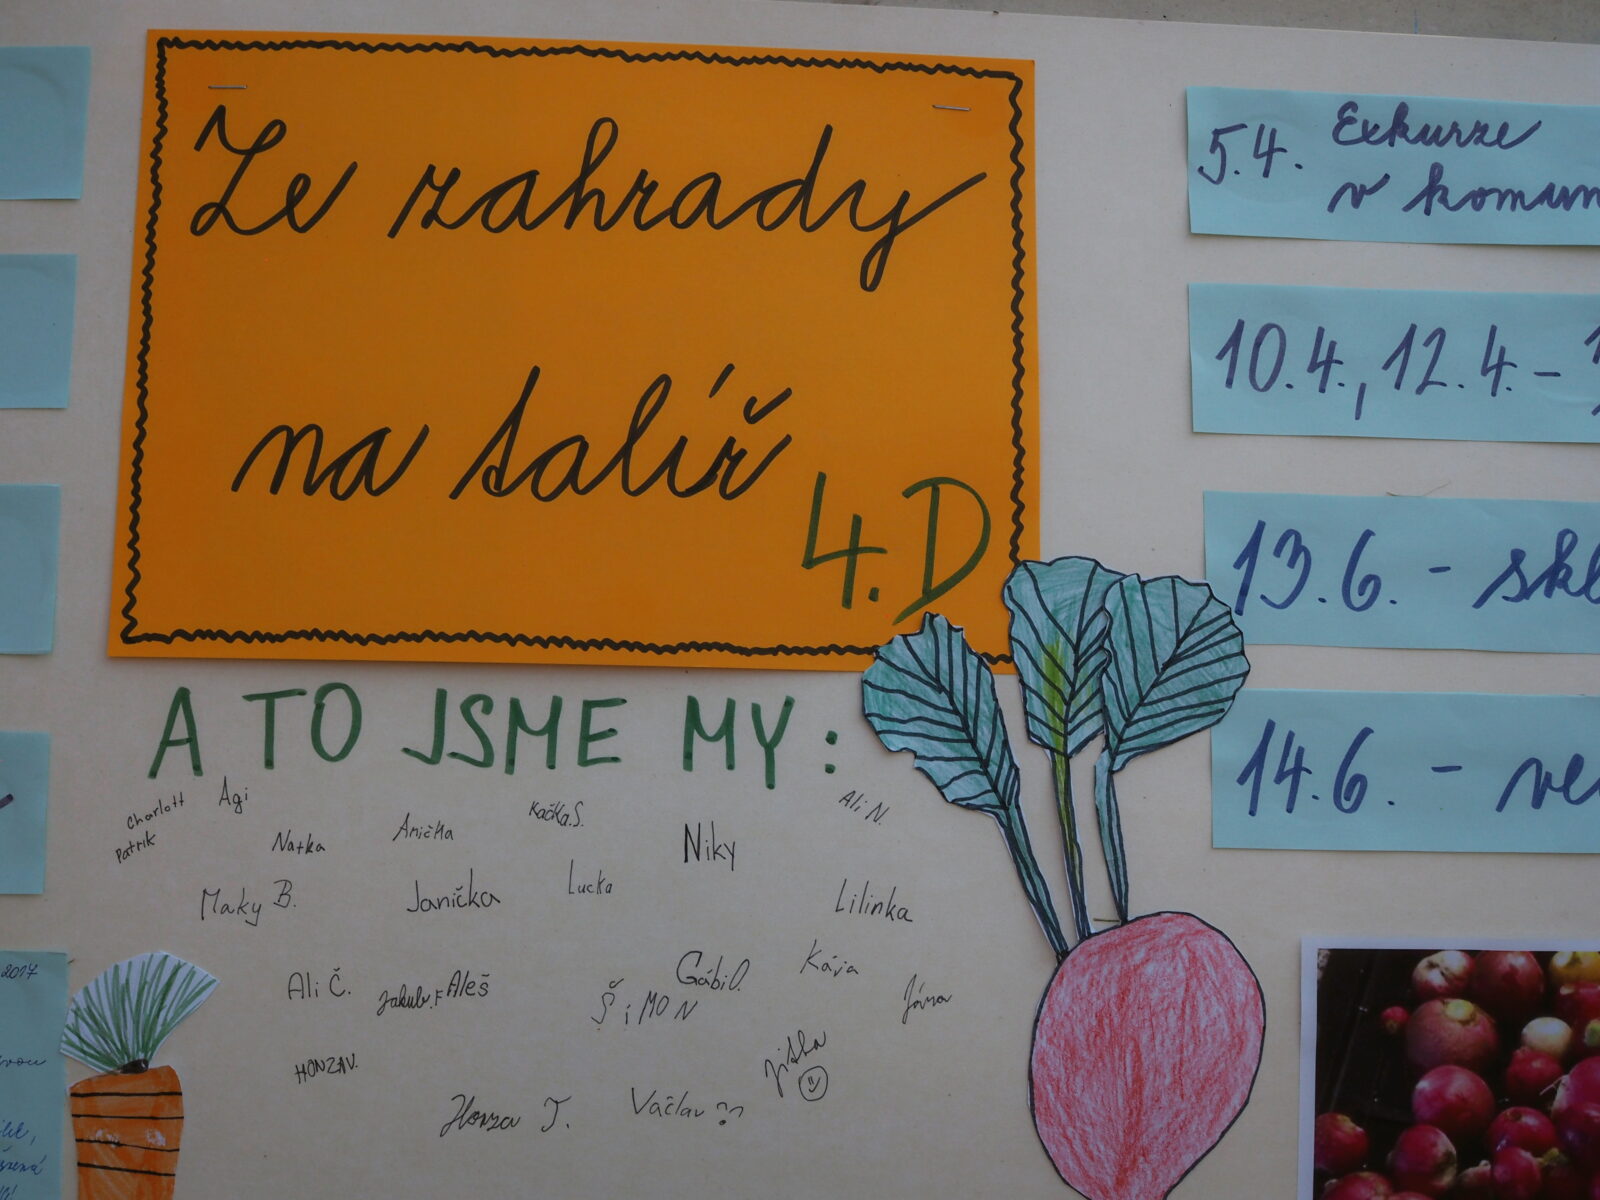 Ze zahrady
na talíř
4.D
A TO JSME MY:
Charlott
Agi
Patrik
Natka
Anička
Kačka.S.
Niky
Ali N.
Maky B.
Janička
Lucka
Lilinka
Ali Č.
Jakub.F
Aleš
ŠiMON
Gábi O.
Kája
HONZA V.
Honza T.
Václav
Jitka
5.4. Exkurze
v komun
10.4., 12.4. -
13.6. - skl
14.6. - ve
2017